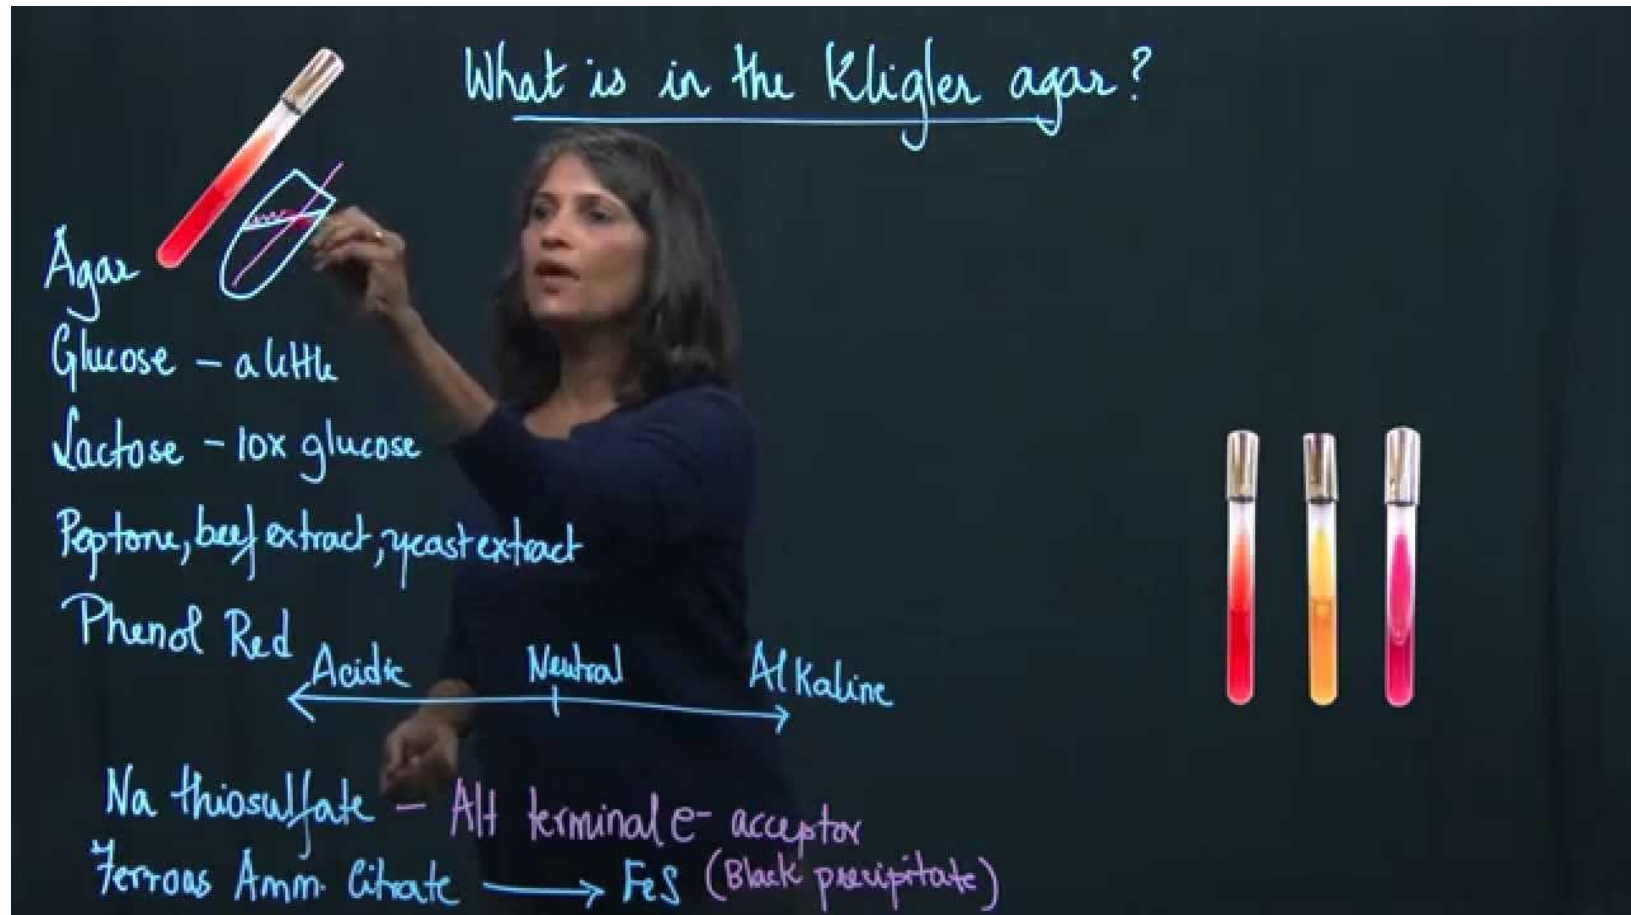 What is in the Kligler agar?
Agar
Glucose - a little
Lactose - 10x glucose
Peptone, beef extract, yeast extract
Phenol Red
Acidic Neutral Alkaline
Na thiosulfate - Alt terminal e- acceptor
Ferrous Amm. Citrate → FeS (Black precipitate)